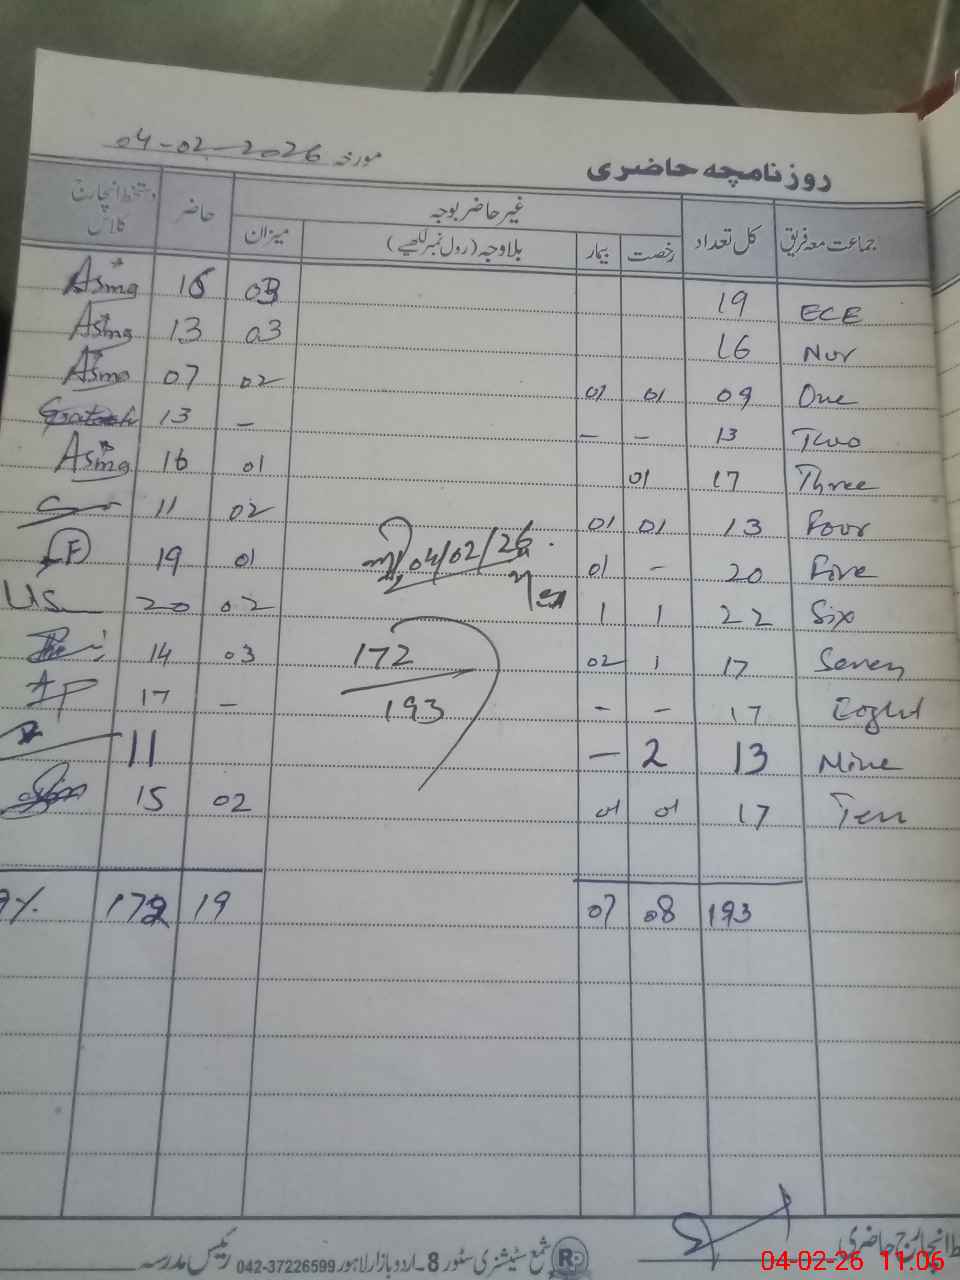 روزنامچہ حاضری
مورخہ 04-02-2026
جماعت معہ فریق کل تعداد غیر حاضر بوجہ حاضر دستخط انچارج کلاس
رخصت بیمار بلاوجہ (رول نمبر لکھیے) میزان
ECE 19 03 16 Asma
Nur 16 03 13 Asma
One 09 01 01 02 07 Asma
Two 13 - - - 13
Three 17 01 01 16 Asma
Four 13 01 01 02 11
Five 20 - 01 01 19 F
Six 22 1 1 02 20 US
Seven 17 1 02 03 14
Eight 17 - - - 17
Nine 13 2 - 11
Ten 17 01 01 02 15
04/02/26
172
193
193 08 07 19 172 %
انچارج حاضری
شمع سٹیشنری سٹور 8۔اردو بازار لاہور 042-37226599
رئیس مدرسہ
04-02-26 11:06